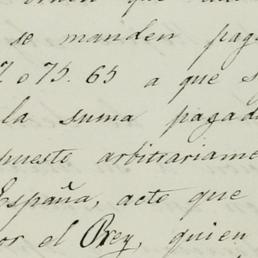 se manden paga
75.65 a que s
la suma pagad
puesto arbitrariame
España, acto que
or el Rey, quien